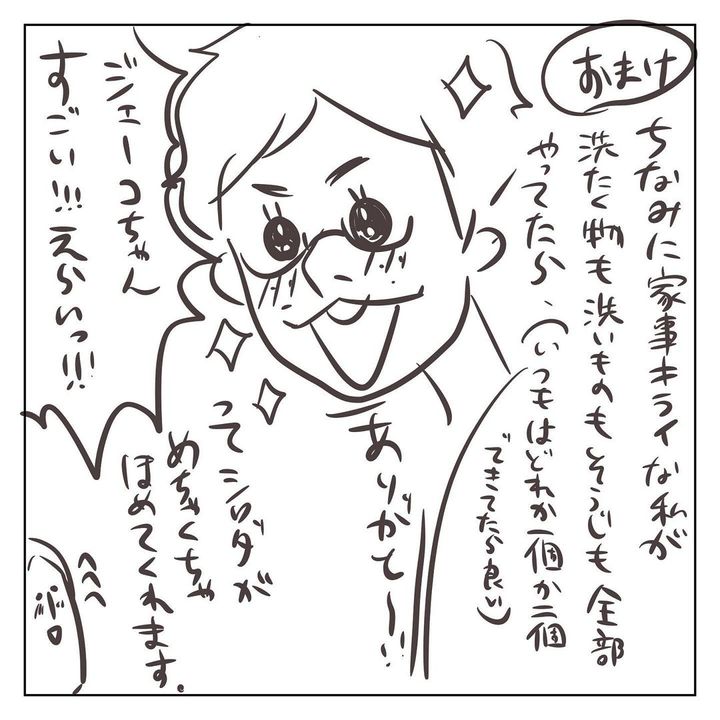 おまけ
ちなみに家事キライな私が
洗たく物も洗いものもそうじも全部
やってたら、(いつもはどれか一個か二個
できてたら良い)
ジェーコちゃん
すごい!!!えらいっ!!!
ありがと〜!!
ってシロダが
めちゃくちゃ
ほめてくれます。